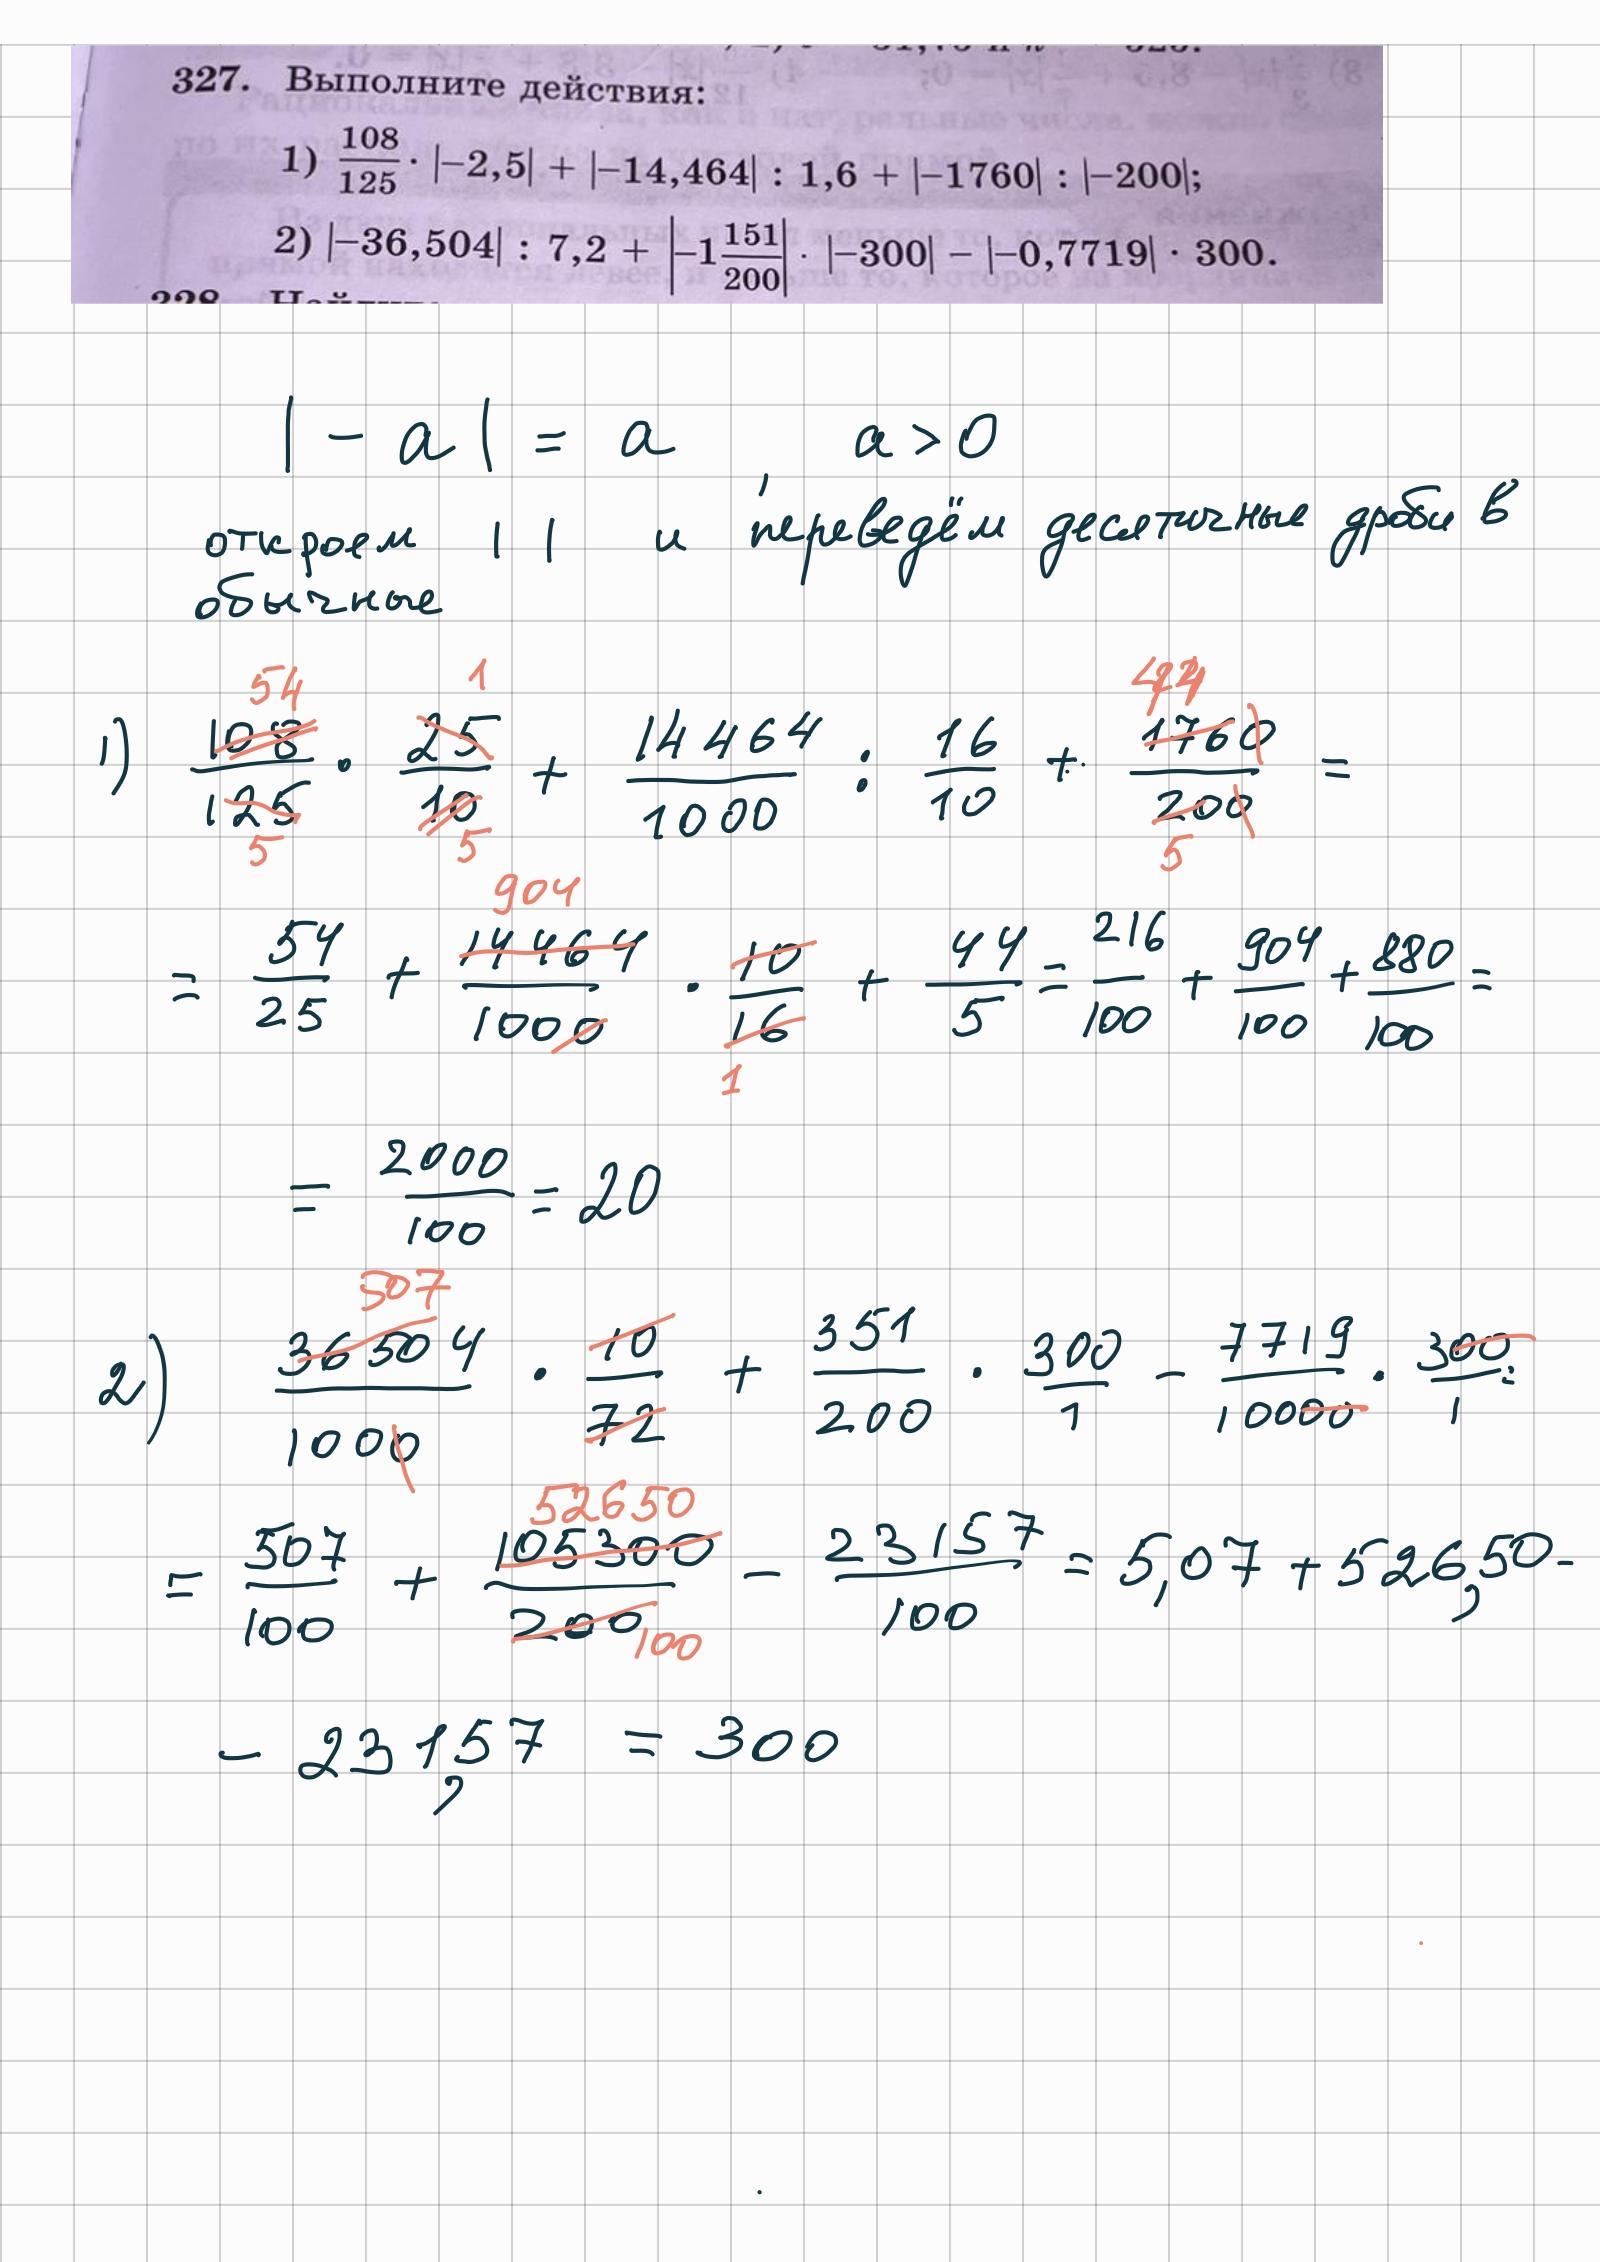 327. Выполните действия:
1) 108/125 · |−2,5| + |−14,464| : 1,6 + |−1760| : |−200|;
2) |−36,504| : 7,2 + |−1 151/200| · |−300| − |−0,7719| · 300.
|− a| = a a > 0
откроем | | и переведём десятичные дроби в
обычные
54 1 44
1) 108/125 · 25/10 + 14464/1000 : 16/10 + 1760/200 =
5 5 5
904
= 54/25 + 14464/1000 · 10/16 + 44/5 = 216/100 + 904/100 + 880/100 =
1
= 2000/100 = 20
507
2) 36504/1000 · 10/72 + 351/200 · 300/1 − 7719/10000 · 300/1 =
52650
= 507/100 + 105300/200 − 23157/100 = 5,07 + 526,50 −
100
− 231,57 = 300